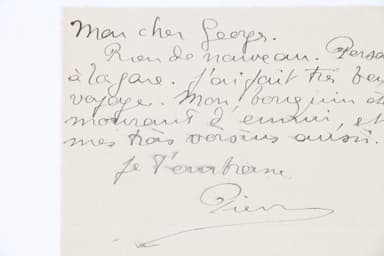 Mon cher George.
Rien de nouveau. Perso
à la gare. J'ai fait très be
voyage. Mon bouquin é
mourant d'ennui, et
mes très voisins aussi.
Je t'embrasse
Pierre